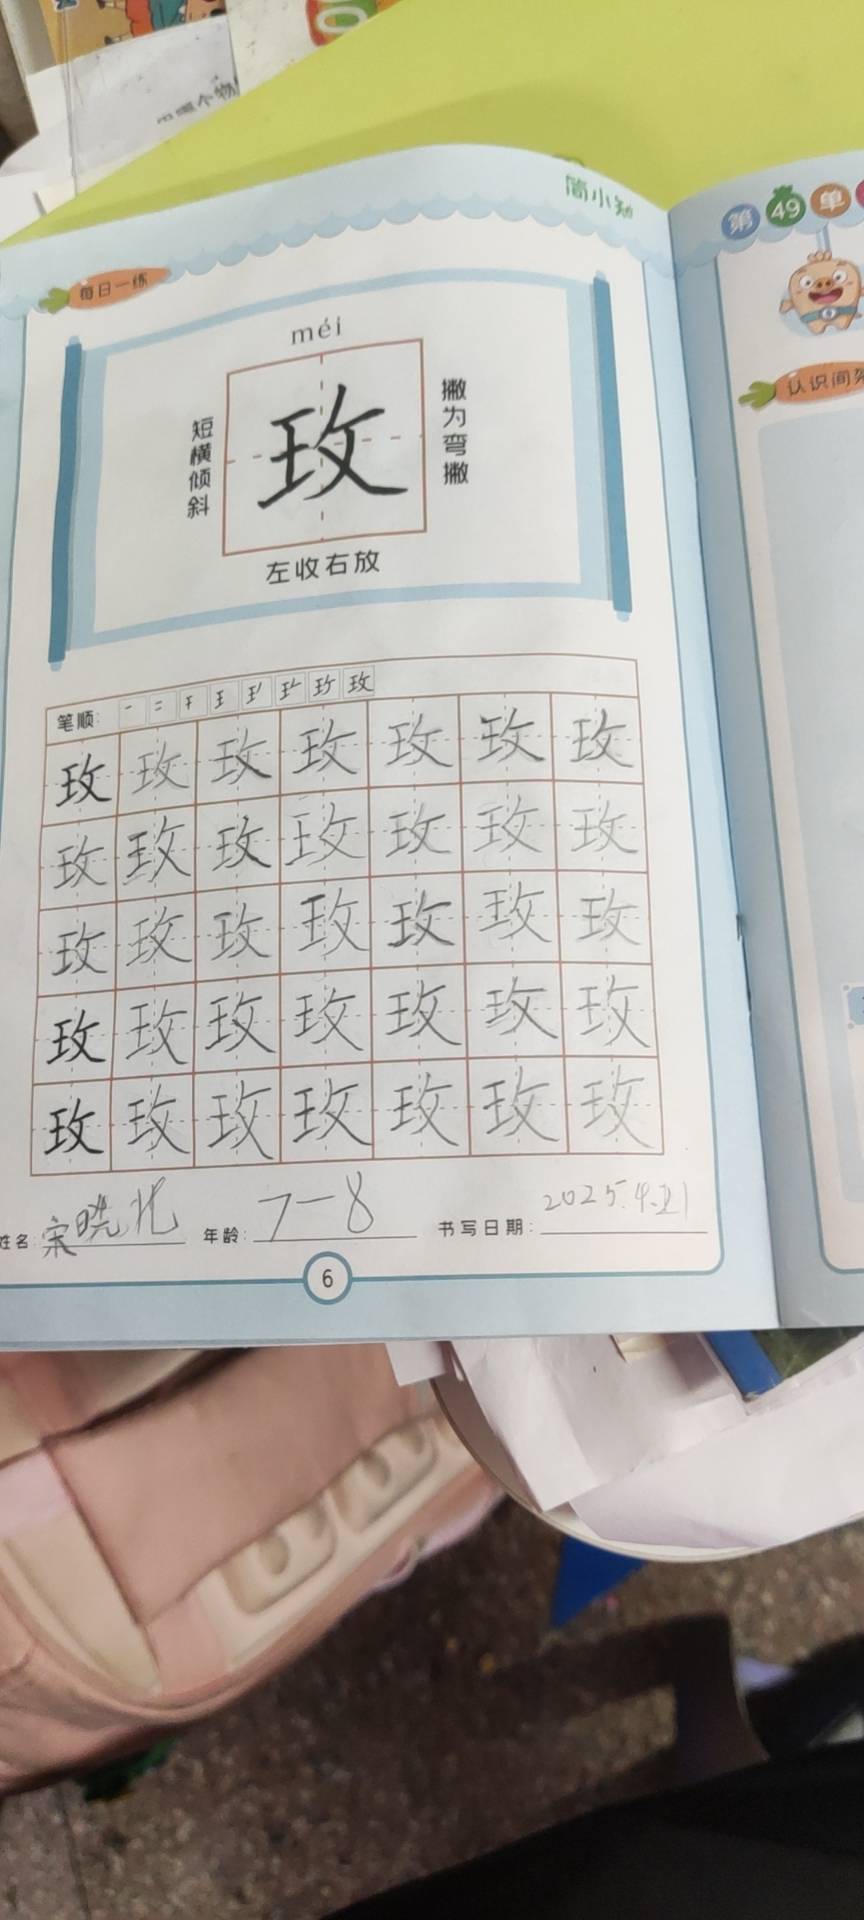 简小知
第49单
每日一练
认识间架
méi
短横倾斜
玫
撇为弯撇
左收右放
笔顺: 玫
玫 玫 玫 玫 玫 玫 玫
玫 玫 玫 玫 玫 玫 玫
玫 玫 玫 玫 玫 玫 玫
玫 玫 玫 玫 玫 玫 玫
玫 玫 玫 玫 玫 玫 玫
姓名: 宋晓 年龄: 7-8 书写日期: 2025.4.21
6